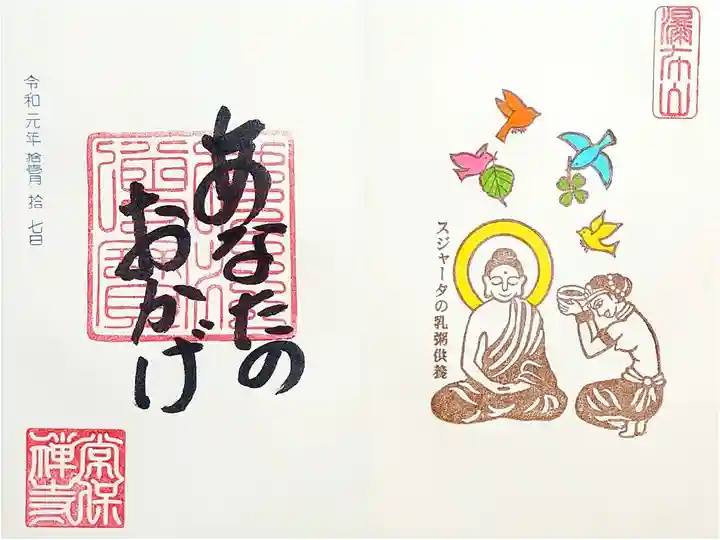 瀑布山
スジャータの乳粥供養
あなたの
おかげ
令和元年 拾壹月 拾七日
常保
禅寺